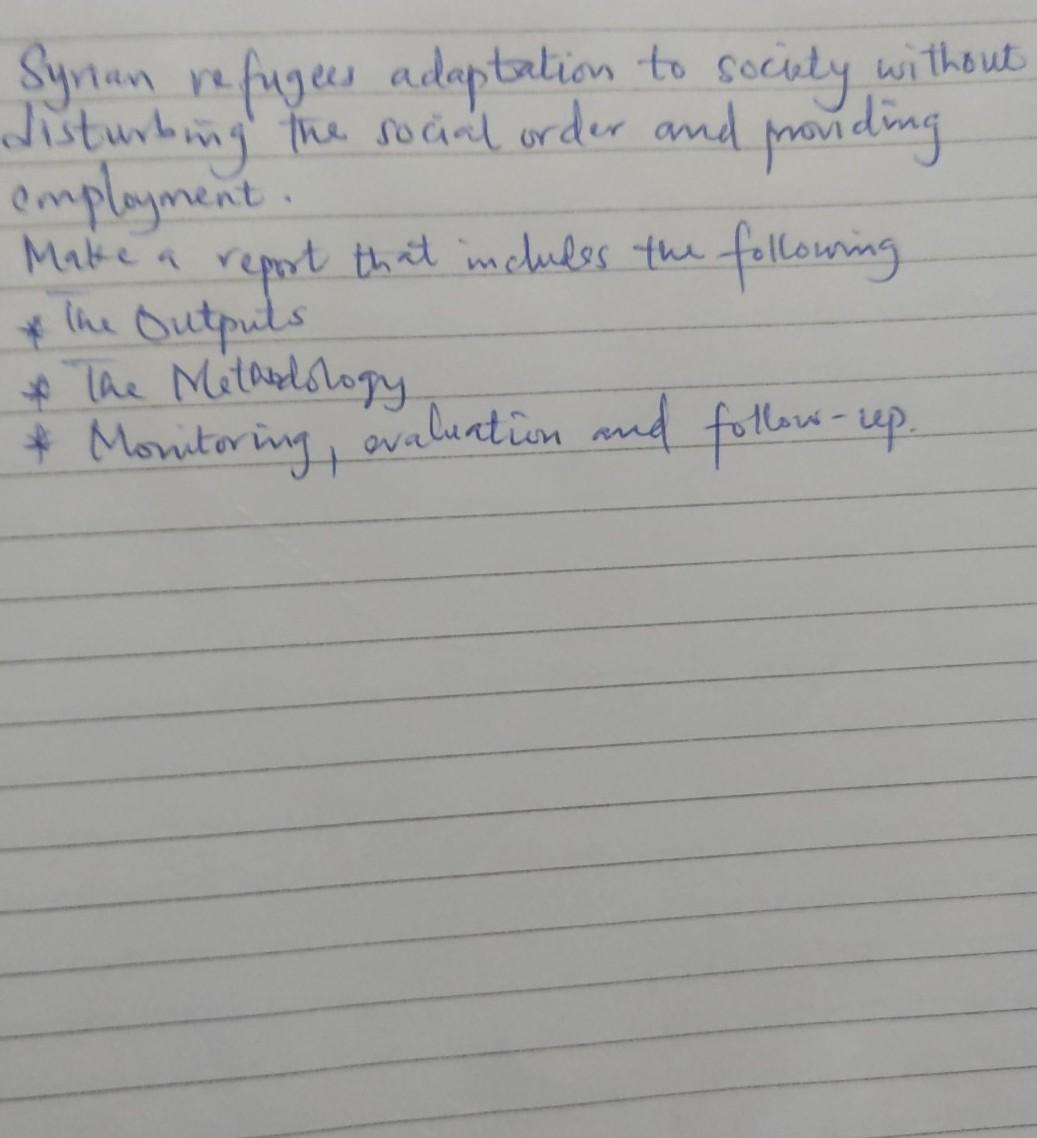 Syrian refugees adaptation to society without
disturbing the social order and providing
employment.
Make a report that includes the following
* The Outputs
* The Methodology
* Monitoring, evaluation and follow-up.